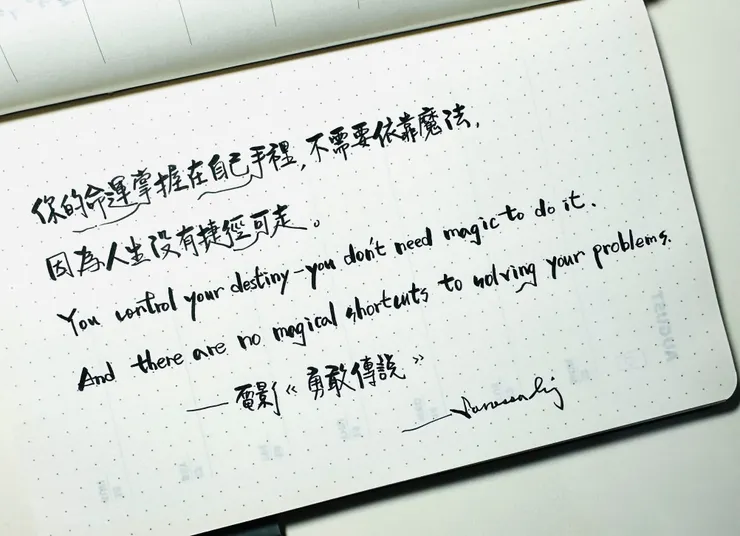 你的命運掌握在自己手裡,不需要依靠魔法,
因為人生沒有捷徑可走。
You control your destiny-you don't need magic to do it.
And there are no magical shortcuts to solving your problems.
——電影《勇敢傳說》